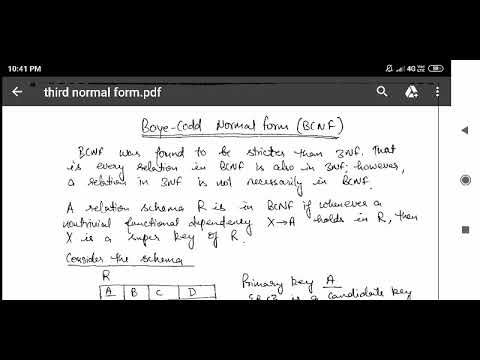 10:41 PM 4G
third normal form.pdf
Boye-Codd Normal form (BCNF)
BCNF was found to be stricter than 3NF. That
is every relation in BCNF is also in 3NF; however,
a relation in 3NF is not necessarily in BCNF.
A relation schema R is in BCNF if whenever a
nontrivial functional dependency X→A holds in R, then
X is a super key of R.
Consider the schema
R
A B C D
Primary key A
is a candidate key